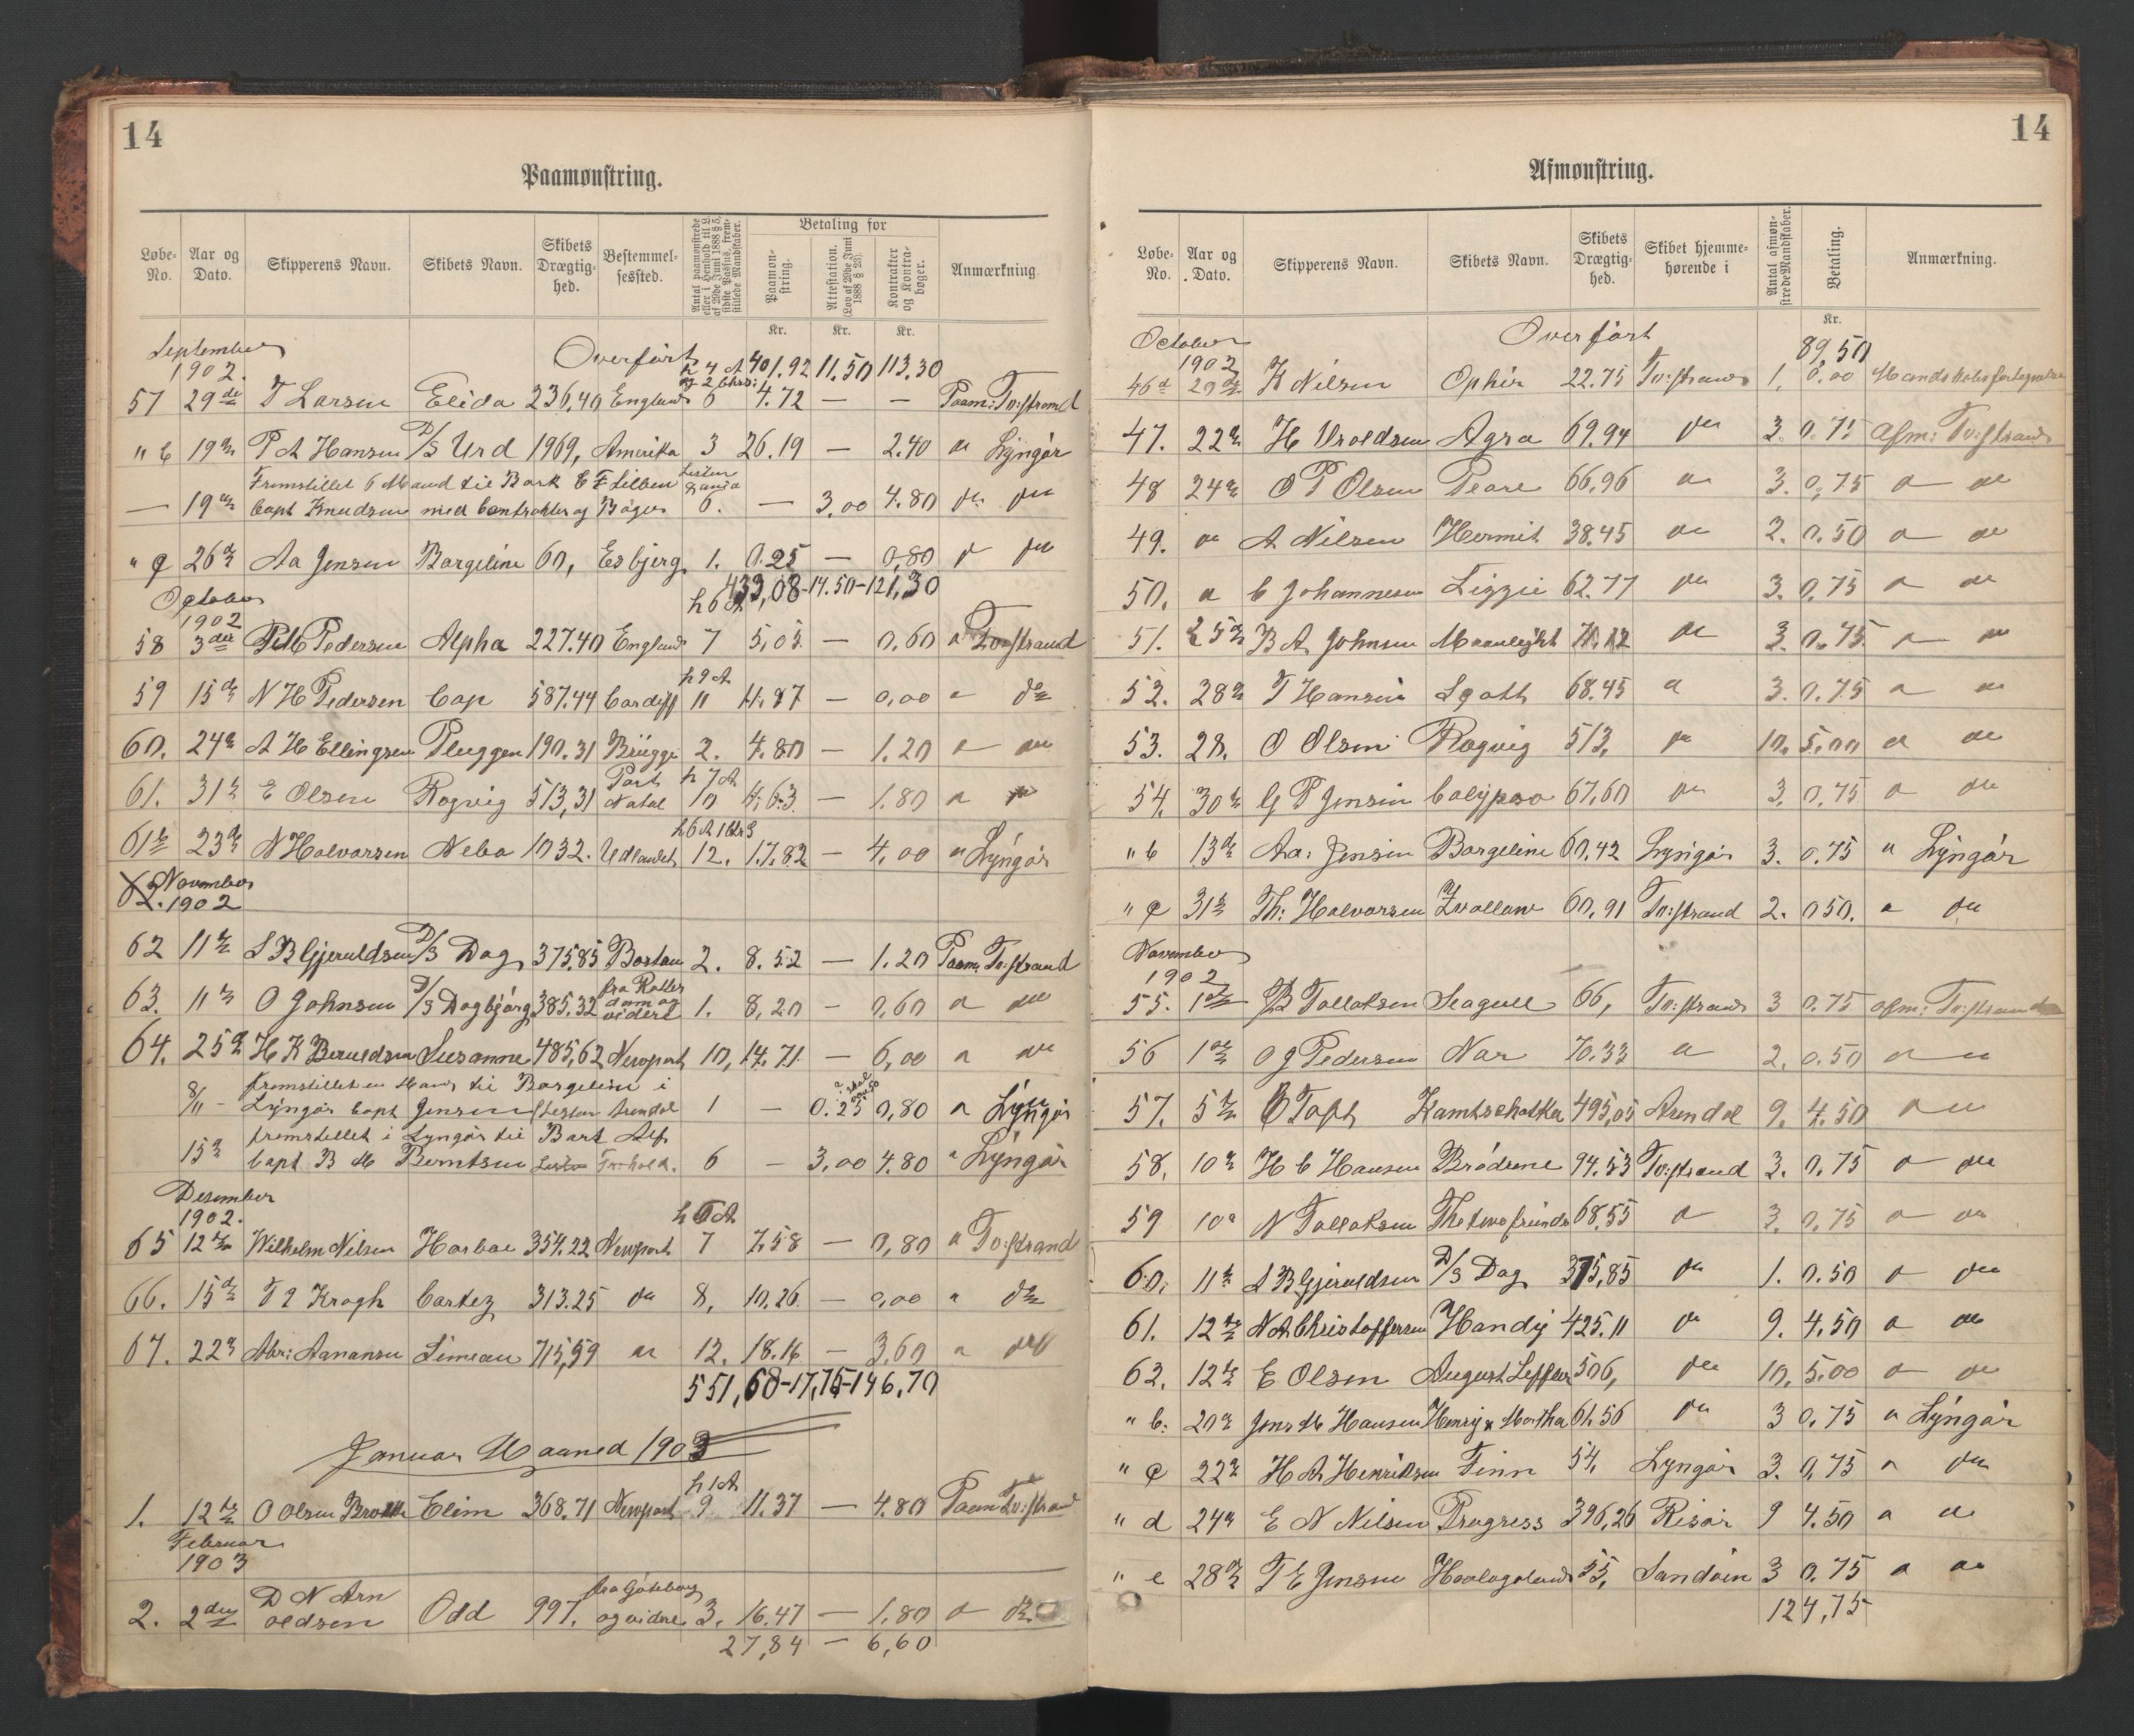 14
Paamønstring.
Løbe-No.
Aar og Dato.
Skipperens Navn.
Skibets Navn.
Skibets Drægtig-hed.
Bestemmel-sessted.
Antal paamønstrede eller i Henhold til L. af 29de Juni 1888 § 5, sidste Passus, frem-stillede Mandskaber.
Betaling for
Paamøn-string.
Attestation. (Lov af 29de Juni 1888 § 23).
Kontrakter og Kontra-bøger.
Anmærkning
Kr. Kr. Kr.
September 1902. Overført 401.92 11.50 113.30
57 29de T Larsen Elida 236,40 England 6 4.72 — — Paam: Tv:strand
" b 19de P A Hansen D/S Urd 1969, Amerika 3 26.19 — 2.40 " Lyngør
Fremstillet 6 Mand til Bark
— 19de Capt Knudsen med Contrakter og Bøger 6. — 3,00 4.80 do do
" c 26de Aa Jensen Bargeline 60, Esbjerg 1. 0.25 — 0,80 do
433,08-14.50-121,30
October 1902 h 6 A
58 3die Pedersen Alpha 227.40 England 7 5,05 — 0,60 " Tv:strand
h 9 A
59 15de N H Pedersen Cap 587.44 Cardiff 11 11.87 — 0,00 " do
60. 24de A H Ellingsen Pluggen 190.31 Brügge 2. 4.80 — 1.20 " do
Port h 7 A
61. 31te E Olsen Rogvig 513,31 Natal 10 4,63 — 1.80 " do
61b 23de N Halvorsen Neba 1032. Udlandet 12. 17.82 — 4,00 " Lyngør
November
1902
62 11te S B Gjeruldsen D/S Dag 375.85 Boston 2. 8.52 — 1.20 Paam Tv:strand
fra Rotter
63. 11te O Johnsen D/S Dagbjørg 385.32 dam og videre 1. 8,20 — 0,60 " do
64. 25de H K Beruldsen Susanne 485,62 Newport 10, 14.71 — 6,00 " do
fremstillet en Mand til Bargeline i
8/11 - Lyngør Capt Jensen Arendal 1 — 0.25 0,80 " Lyngør
fremstillet i Lyngør til Bark Alf
15de Capt B M Berntsen 6 — 3,00 4.80 " Lyngør
Desember
1902.
65 12te Wilhelm Nilsen Harboe 354.22 Newport 7 7.58 — 0,80 " Tv:strand
66. 15de T Krogh Cortez 313.25 do 8, 10.26 — 0,00 " do
67. 22de Abr: Aanansen Simeon 715,59 " 12. 18.16 — 3,60 " do
551,68-17,75-146,70
Januar Maaned 1903
h 1 A
1. 12te O Olsen Elim 368.71 Newport 9 11.37 — 4.80 Paam Tv:strand
Februar
1903
D N Arn fra Göteborg
2. 2den oldsen Odd 997. og videre 3. 16.47 — 1,80 " do
27,84 — 6,60
14
Afmønstring.
Løbe-No.
Aar og Dato.
Skipperens Navn.
Skibets Navn.
Skibets Drægtig-hed.
Skibet hjemme-hørende i
Antal afmøn-strede Mandskaber.
Betaling.
Anmærkning.
Kr.
October 1902 Overført 89,50
46 29de K Nilsen Ophir 22.75 Tv:strand 1. 0.00
47. 22de H Uroldsen Agra 69.94 do 3. 0.75 Afm: Tv:strand
48 24de O P Olsen Peare 66,96 " 3. 0,75 " do
49. " A Nilsen Hermit 38.45 do 2. 0.50 " do
50. " C Johannesen Lizzie 62.77 do 3. 0.75 " do
51. 25de B A Johnsen Moonlight do 3. 0.75 " do
52. 28de T Hansen Sgott 68.45 " 3. 0.75 " do
53. 28. O Olsen Rogvig 513, do 10, 5,00 " do
54. 30te G P Jensen Calypso 67,60 do 3, 0,75 " do
" b 13de Aa: Jensen Bargeline 60,42 Lyngør 3. 0.75 " Lyngør
" c 31te Th: Halvorsen 60,91 Tv:strand 2. 0 50. " do
November
1902
55. 1ste B Tallaksen Seagull 66, Tv:strand 3 0.75 Afm: Tv:strand
56 1ste O J Pedersen Nar 70.33 " 2, 0.50 " "
57. 5te Taft Kamtschatka 495,05 Arendal 9. 4.50 " "
58. 10de H C Hansen Brödrene 94.53 Tv:strand 3. 0.75 " do
59 10de N Tallaksen The two friends 68.55 " 3. 0,75 " do
60. 11te S B Gjeruldsen D/S Dag 375,85 do 1. 0.50 " do
61. 12te N A Christoffersen Handy 425.11 do 9. 4,50 " do
62. 12te E Olsen August Leffler 506, do 10. 5.00 " do
" b. 20de Jens M Hansen Henry & Martha 61,56 do 3 0.75 " Lyngør
" c 22de H A Henriksen Finn 54, Lyngør 3. 0,75 " do
" d 24de E N Nilsen Progress 396,26 Risør 9 4.50 " do
" e 28de T E Jensen Haalogaland 55, Sandøen 3 0.75 " do
124,75